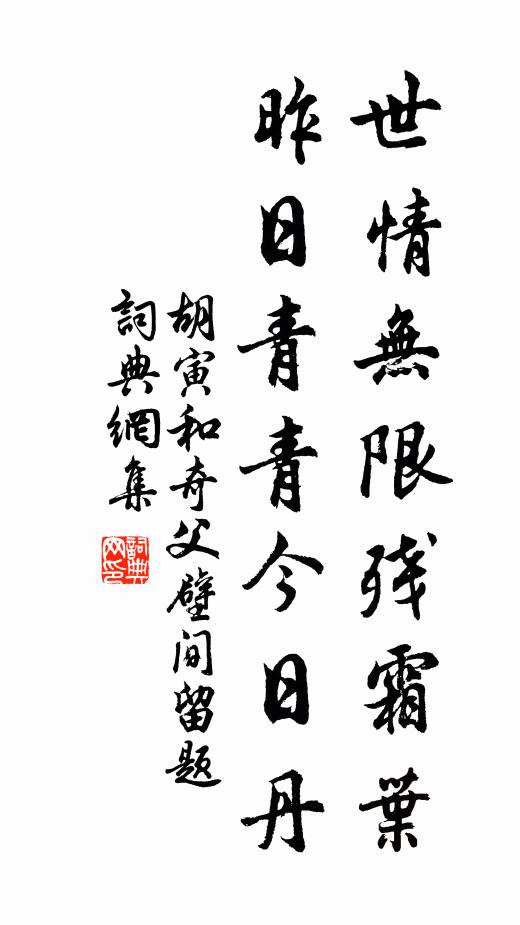 世情無限残霜葉
昨日青青今日丹
胡寅和奇父壁间留题
詞典網集
詞典網印